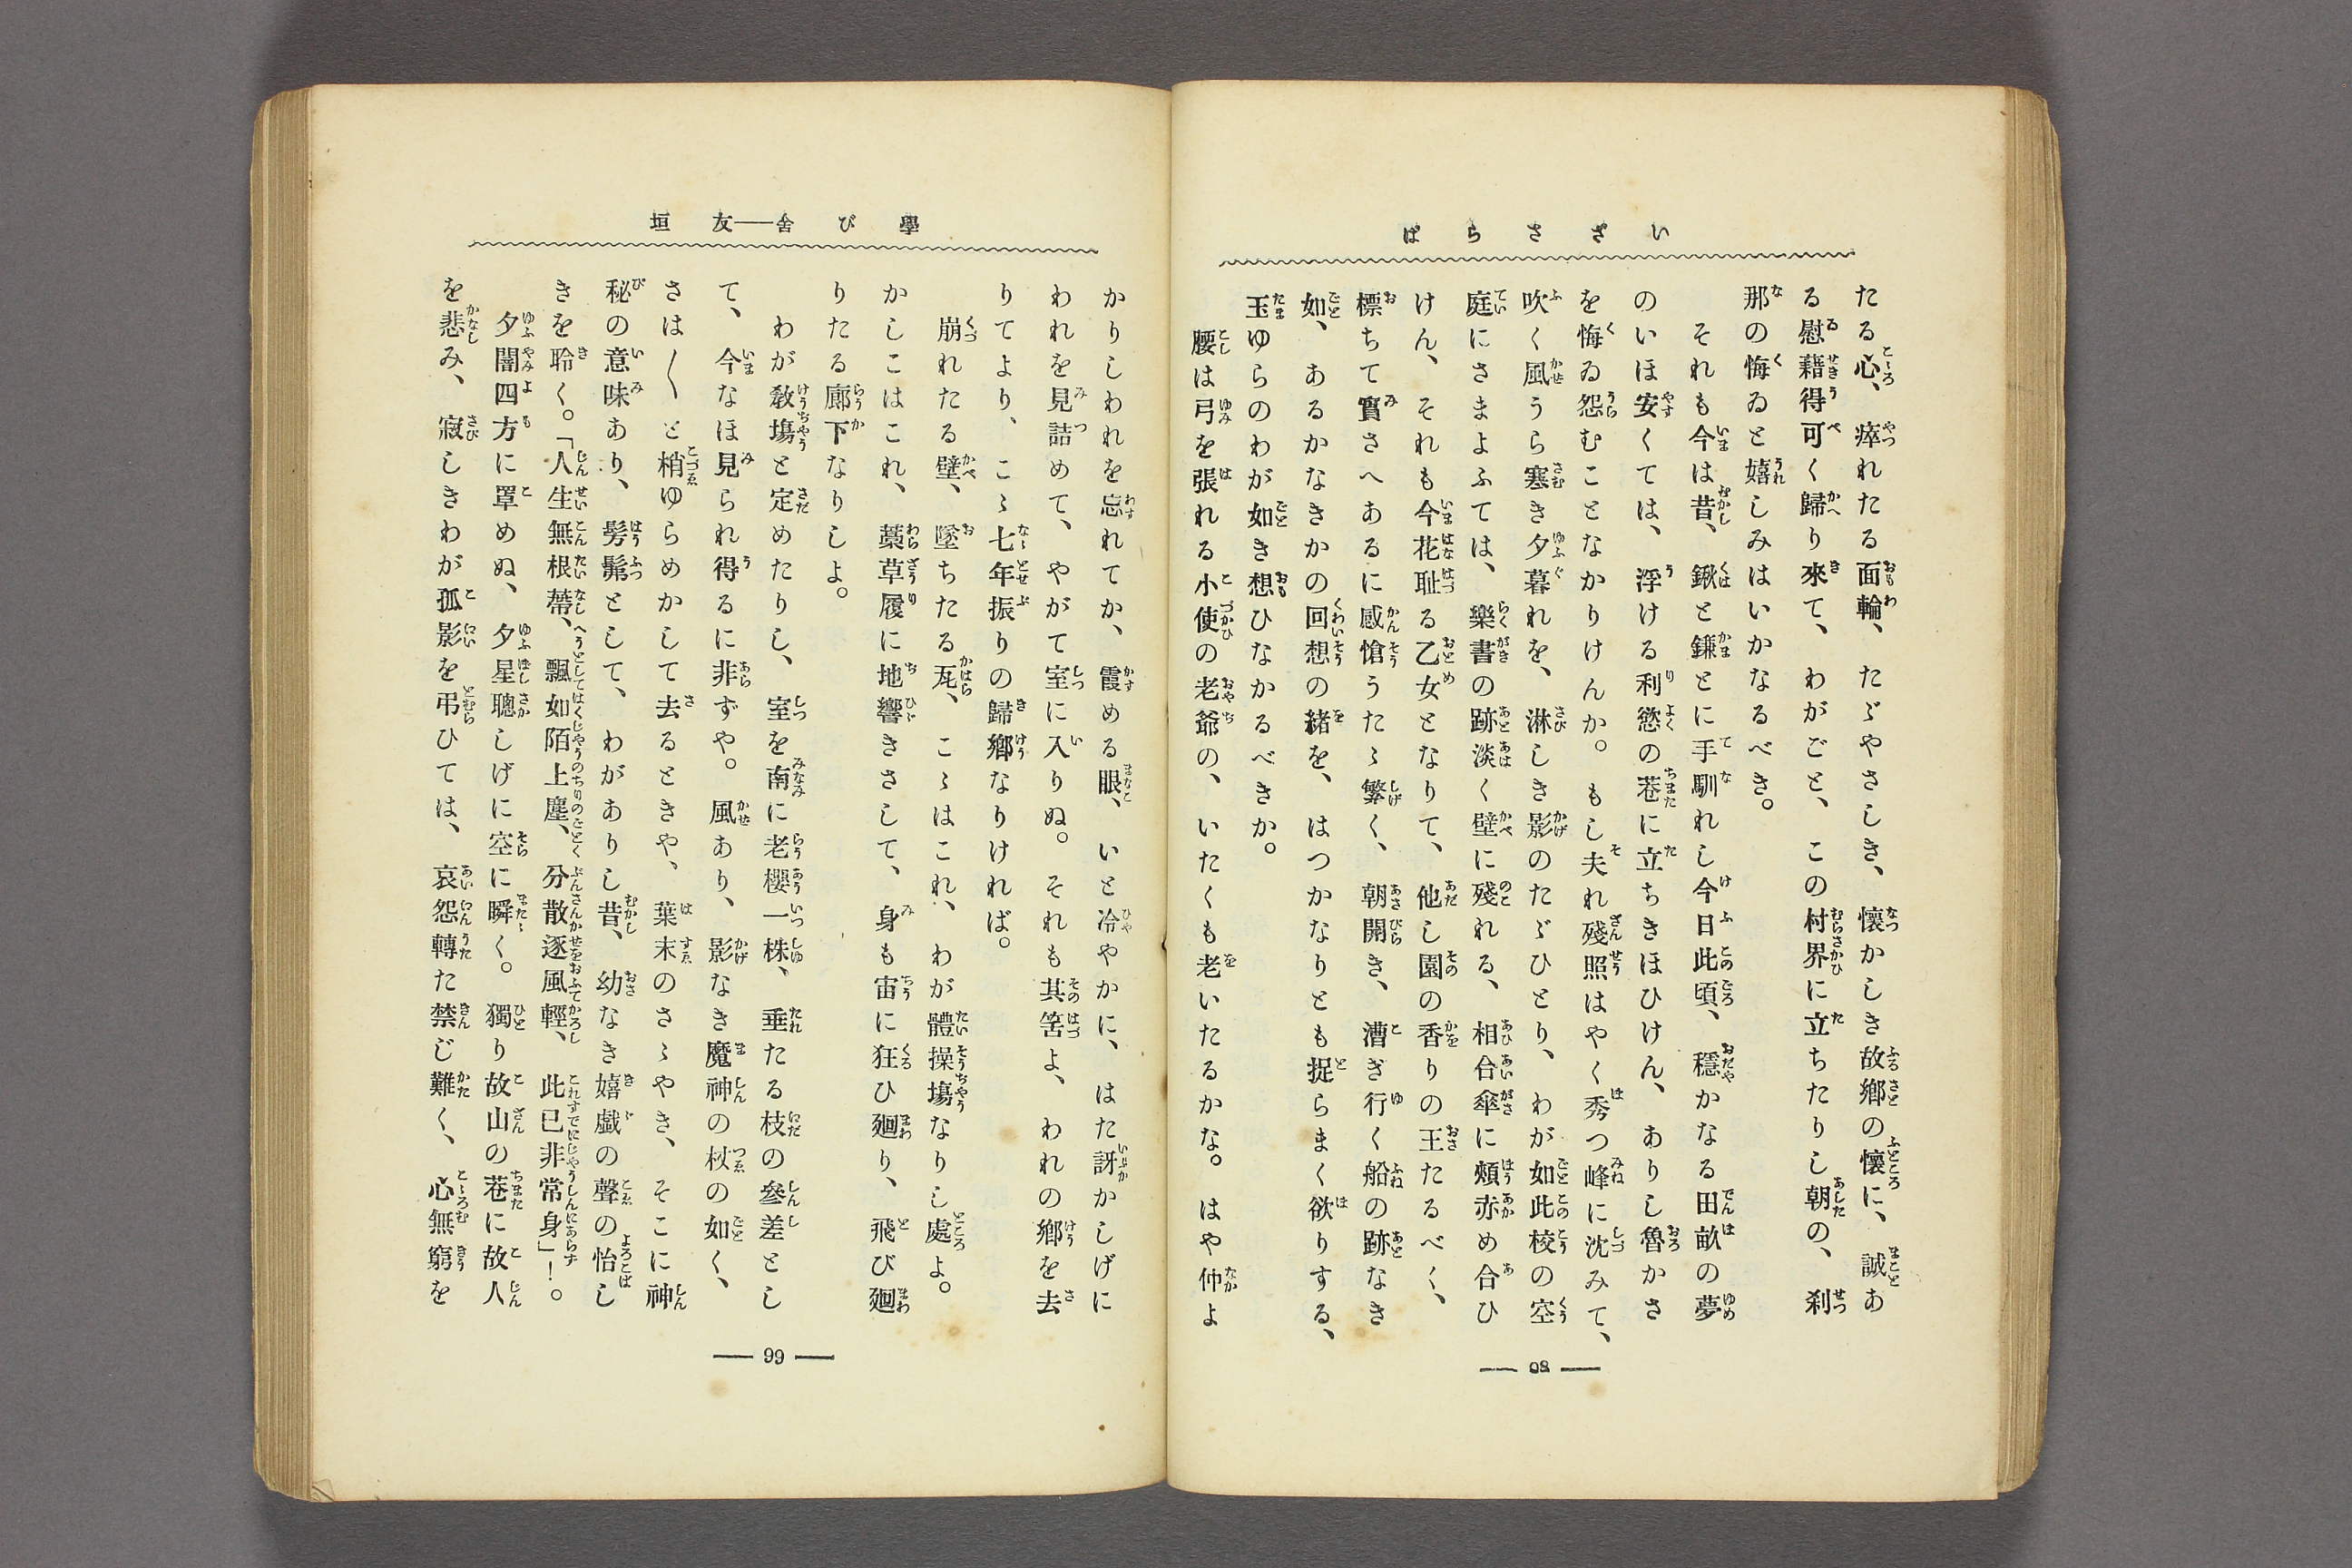 いざさらば
たる心、瘁れたる面輪、たゞやさしき、懷かしき故鄕の懷に、誠あ
る慰藉得可く歸り來て、わがごと、この村界に立ちたりし朝の、刹
那の悔ゐと嬉しみはいかなるべき。
それも今は昔、鍬と鎌とに手馴れし今日此頃、穩かなる田畝の夢
のいほ安くては、浮ける利慾の巷に立ちきほひけん、ありし魯かさ
を悔ゐ怨むことなかりけんか。もし夫れ殘照はやく秀つ峰に沈みて、
吹く風うら寒き夕暮れを、淋しき影のたゞひとり、わが如此棱の空
庭にさまよふては、樂書の跡淡く壁に殘れる、相合傘に頰赤め合ひ
けん、それも今花耻る乙女となりて、他し園の香りの王たるべく、
標ちて實さへあるに感愴うたゝ繁く、朝開き、漕ぎ行く船の跡なき
如、あるかなきかの回想の緒を、はつかなりとも捉らまく欲りする、
玉ゆらのわが如き想ひなかるべきか。
腰は弓を張れる小使の老爺の、いたくも老いたるかな。はや仲よ
— 98 —
學び舍——友垣
かりしわれを忘れてか、霞める眼、いと冷やかに、はた訝かしげに
われを見詰めて、やがて室に入りぬ。それも其筈よ、われの鄕を去
りてより、こゝ七年振りの歸鄕なりければ。
崩れたる壁、墜ちたる瓦、こゝはこれ、わが體操場なりし處よ。
かしこはこれ、藁草履に地響きさして、身も宙に狂ひ廻り、飛び廻
りたる廊下なりしよ。
わが敎塲と定めたりし、室を南に老櫻一株、垂たる枝の參差とし
て、今なほ見られ得るに非ずや。風あり、影なき魔神の杖の如く、
さは〱と梢ゆらめかして去るときや、葉末のさゝやき、そこに神
秘の意味あり、髣髴として、わがありし昔、幼なき嬉戯の聲の怡し
きを聆く。「人生無根蔕、飄如陌上塵、分散逐風輕、此已非常身」！。
夕闇四方に罩めぬ、夕星聰しげに空に瞬く。獨り故山の巷に故人
を悲み、寂しきわが孤影を弔ひては、哀怨轉た禁じ難く、心無窮を
— 99 —